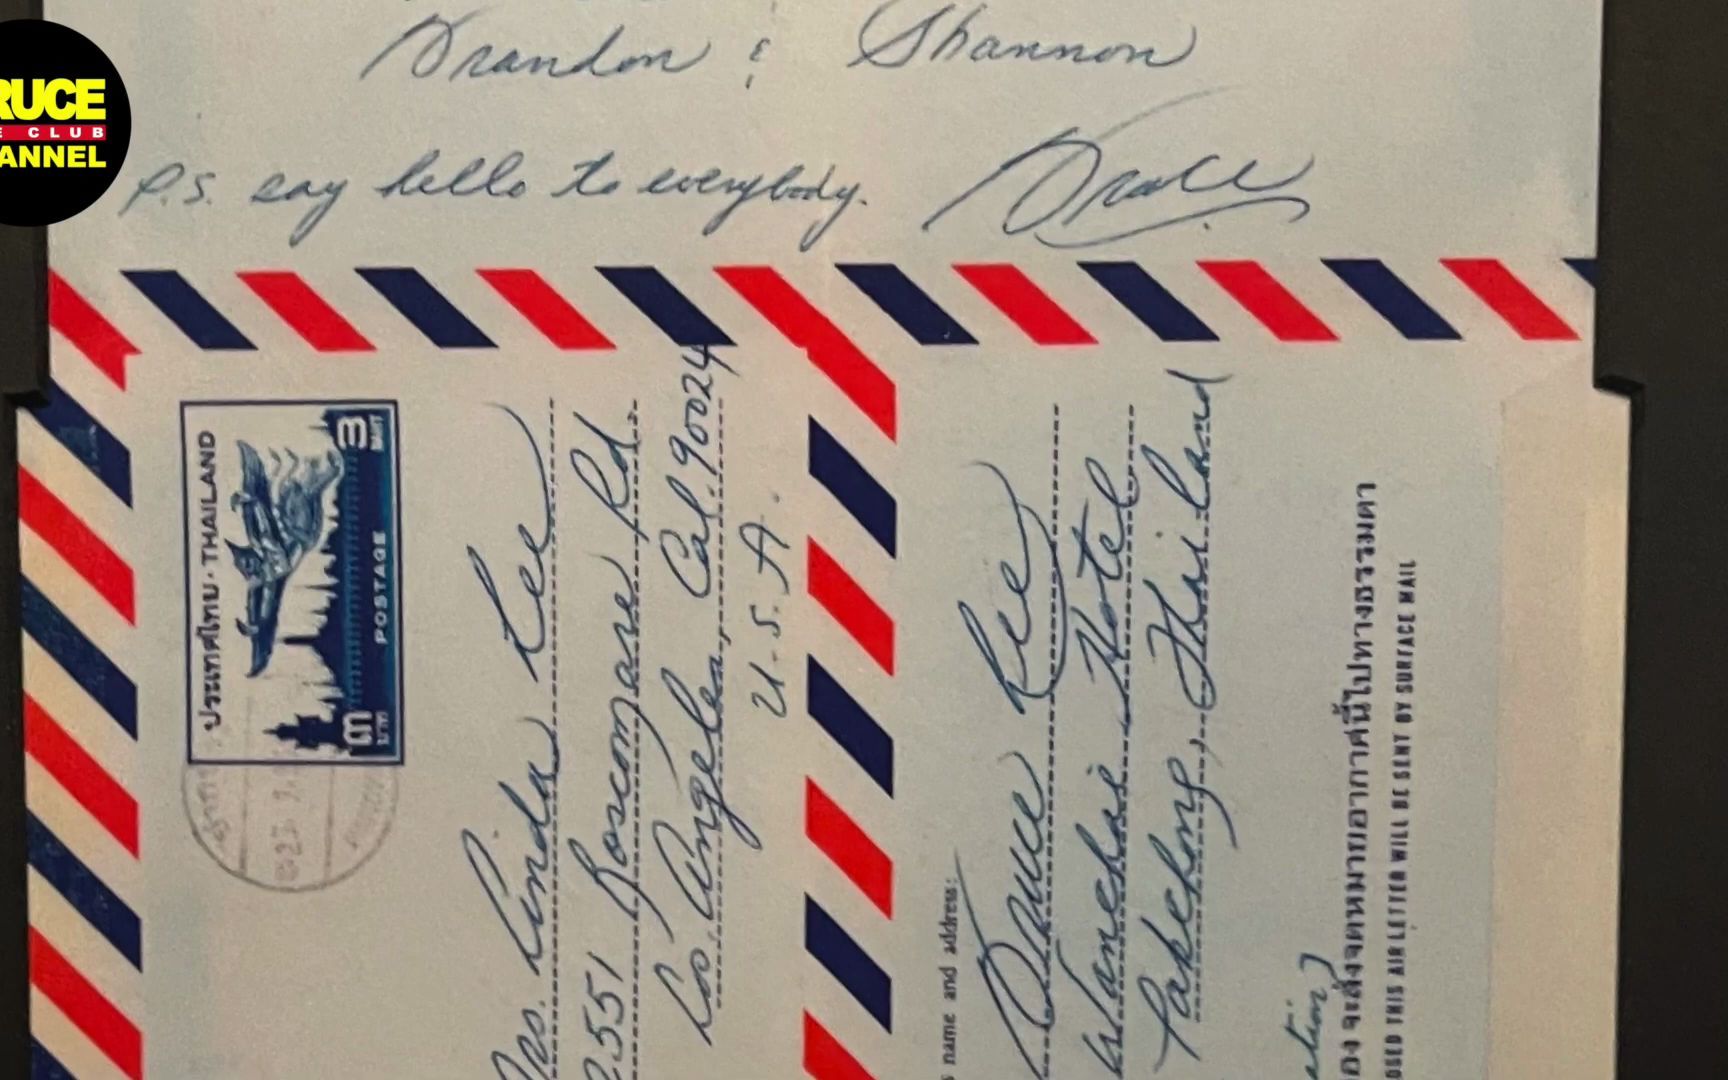 RUCE
E CLUB
ANNEL
Brandon & Shannon
P.S. say hello to everybody.
Bruce
ประเทศไทย · THAILAND
3
BAHT
๓
บาท
POSTAGE
Mrs. Linda Lee
2551 Roscomare Rd.
Los Angeles, Cal. 90024
U.S.A.
name and address:
Bruce Lee
Wanchai Hotel
Pakchong, Thailand
ation)
อง จะส่งจดหมายอากาศนี้ไปทางธรรมดา
OSED THIS AIR LETTER WILL BE SENT BY SURFACE MAIL